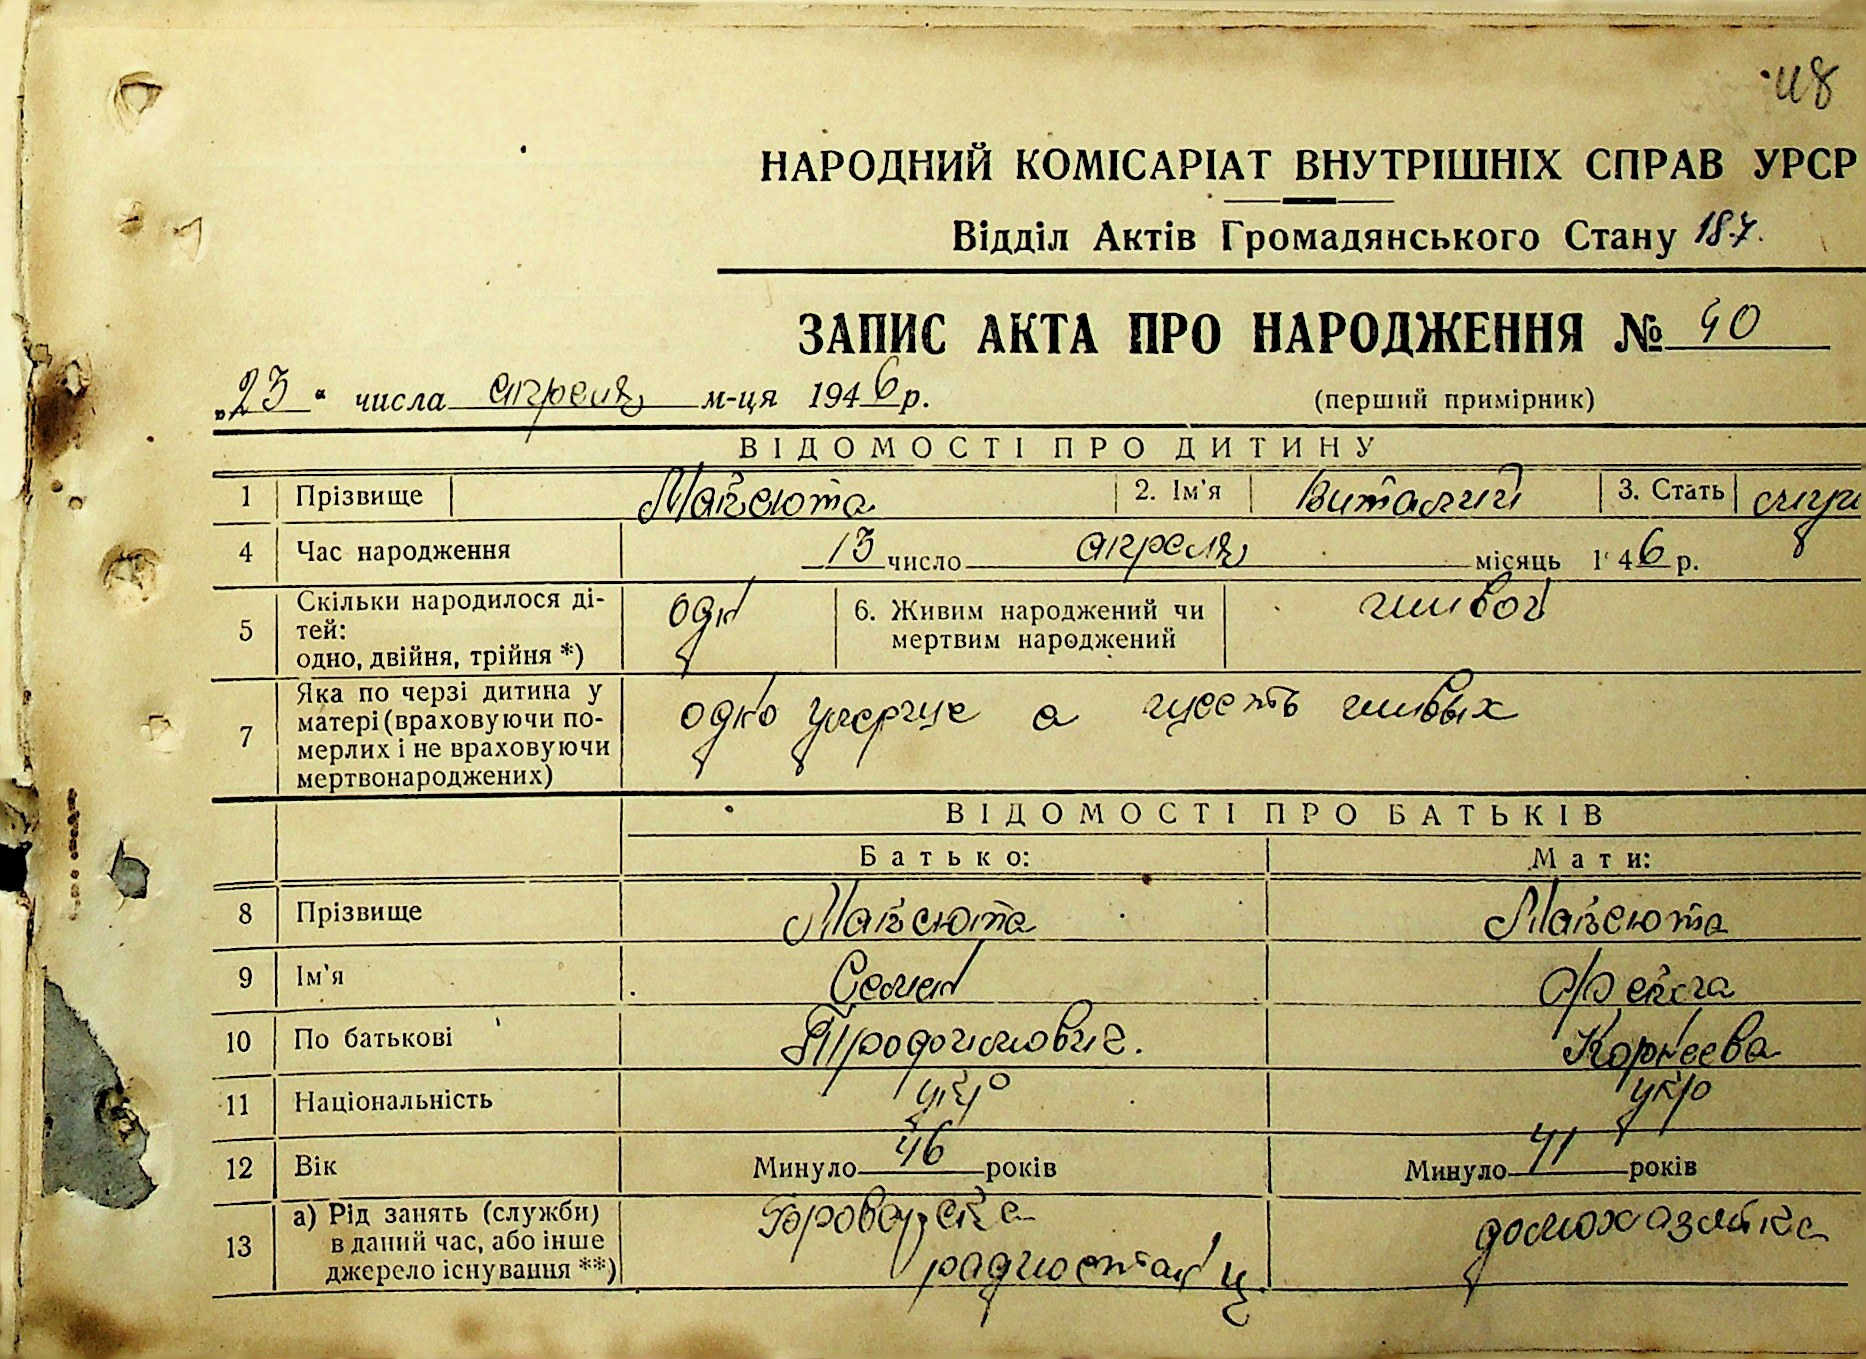 48
НАРОДНИЙ КОМІСАРІАТ ВНУТРІШНІХ СПРАВ УРСР
Відділ Актів Громадянського Стану 187.
ЗАПИС АКТА ПРО НАРОДЖЕННЯ № 40
„23“ числа апреля м-ця 1946 р. (перший примірник)
ВІДОМОСТІ ПРО ДИТИНУ
1 Прізвище Максюта 2. Ім'я Виталий 3. Стать
4 Час народження 13 число апреля місяць 1946 р.
5 Скільки народилося ді-
тей:
одно, двійня, трійня *) одн 6. Живим народжений чи
мертвим народжений живой
7 Яка по черзі дитина у
матері (враховуючи по-
мерлих і не враховуючи
мертвонароджених) одно умерше а шесть живых
ВІДОМОСТІ ПРО БАТЬКІВ
Батько: Мати:
8 Прізвище Максюта Максюта
9 Ім'я Семен Фекла
10 По батькові Корнеева
11 Національність укр укр
12 Вік Минуло 46 років Минуло 41 років
13 а) Рід занять (служби)
в даний час, або інше
джерело існування **) домохазяйка